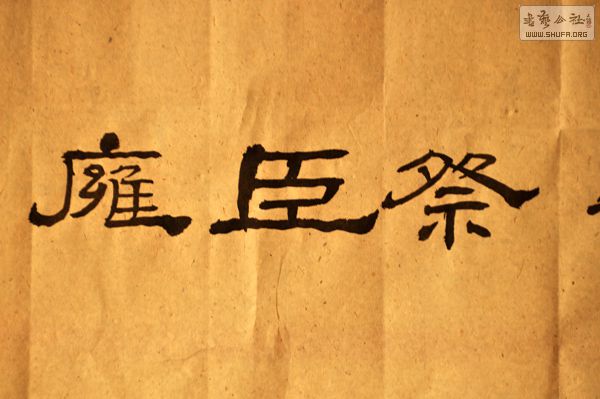 書藝公社
WWW.SHUFA.ORG
雍臣祭